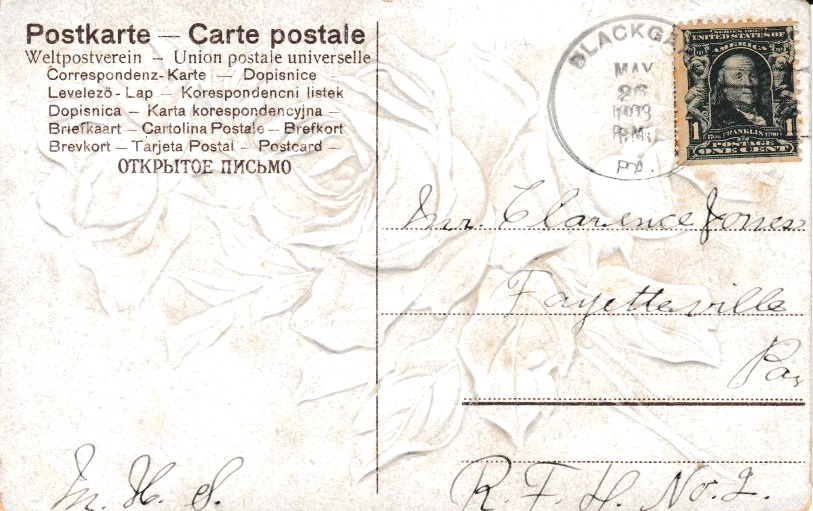 Postkarte — Carte postale
Weltpostverein — Union postale universelle
Correspondenz-Karte — Dopisnice
Levelező-Lap — Korespondencni listek
Dopisnica — Karta korespondencyjna —
Briefkaart — Cartolina Postale — Brefkort
Brevkort — Tarjeta Postal — Postcard —
ОТКРЫТОЕ ПИСЬМО
MAY
26
P.M.
PA.
SERIES 1902
UNITED STATES OF
AMERICA
1 FRANKLIN 1
POSTAGE
ONE CENT
Mr. Clarence Jones
Fayetteville
Pa,
M. H. S.
R. F. D. No. 2.